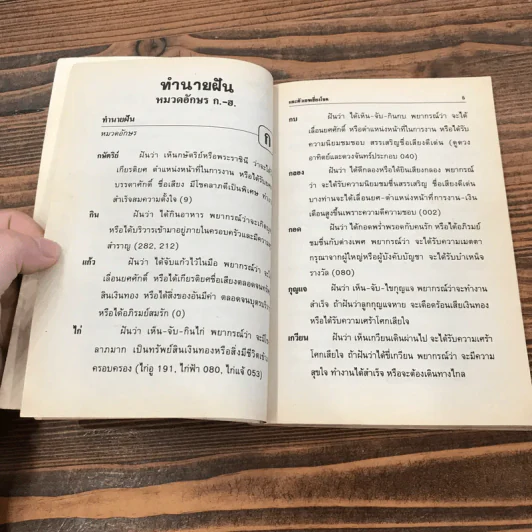 ทำนายฝัน
หมวดอักษร ก.-ฮ.
ทำนายฝัน
หมวดอักษร
ก
กษัตริย์ ฝันว่า เห็นกษัตริย์หรือพระราชินี
เกียรติยศ ตำแหน่งหน้าที่ในการงาน หรือได้รับ
บรรดาศักดิ์ ชื่อเสียง มีโชคลาภดีเป็นพิเศษ
สำเร็จสมความตั้งใจ (9)
กิน ฝันว่า ได้กินอาหาร พยากรณ์ว่าจะเกิด
หรือได้บริวารเข้ามาอยู่ภายในครอบครัวและมีความ
สำราญ (282, 212)
แก้ว ฝันว่า ได้จับแก้วไว้ในมือ พยากรณ์ว่า
เลื่อนยศศักดิ์ หรือได้เกียรติยศชื่อเสียงตลอดจน
สินเงินทอง หรือได้สิ่งของอันมีค่า ตลอดจนบุตร
หรือได้อภิรมย์สมรัก (0)
ไก่ ฝันว่า เห็น-จับ-กินไก่ พยากรณ์ว่า จะมี
ลาภมาก เป็นทรัพย์สินเงินทองหรือสิ่งมีชีวิต
ครอบครอง (ไก่อู 191, ไก่ฟ้า 080, ไก่แจ้ 053)
และตัวเลขเสี่ยงโชค 5
กบ ฝันว่า ได้เห็น-จับ-กินกบ พยากรณ์ว่า จะได้
เลื่อนยศศักดิ์ หรือตำแหน่งหน้าที่ในการงาน หรือได้รับ
ความนิยมชมชอบ สรรเสริญชื่อเสียงดีเด่น (ดูดวง
อาทิตย์และดวงจันทร์ประกอบ 040)
กลอง ฝันว่า ได้ตีกลองหรือได้ยินเสียงกลอง พยากรณ์
ว่า จะได้รับความนิยมชมชื่นสรรเสริญ ชื่อเสียงดีเด่น
บางท่านจะได้เลื่อนยศ-ตำแหน่งหน้าที่การงาน-เงิน
เดือนสูงขึ้นเพราะความดีความชอบ (002)
กอด ฝันว่า ได้กอดพร่ำพรอดกับคนรัก หรือได้อภิรมย์
ชมชื่นกับต่างเพศ พยากรณ์ว่า จะได้รับความเมตตา
กรุณาจากผู้ใหญ่หรือผู้บังคับบัญชา จะได้รับบำเหน็จ
รางวัล (080)
กุญแจ ฝันว่า เห็น-จับ-ไขกุญแจ พยากรณ์ว่าจะทำงาน
สำเร็จ ถ้าฝันว่าลูกกุญแจหาย จะเดือดร้อนเสียเงินทอง
หรือได้รับความเศร้าโศกเสียใจ
เกวียน ฝันว่า เห็นเกวียนเดินผ่านไป จะได้รับความเศร้า
โศกเสียใจ ถ้าฝันว่าได้ขี่เกวียน พยากรณ์ว่า จะมีความ
สุขใจ ทำงานได้สำเร็จ หรือจะต้องเดินทางไกล